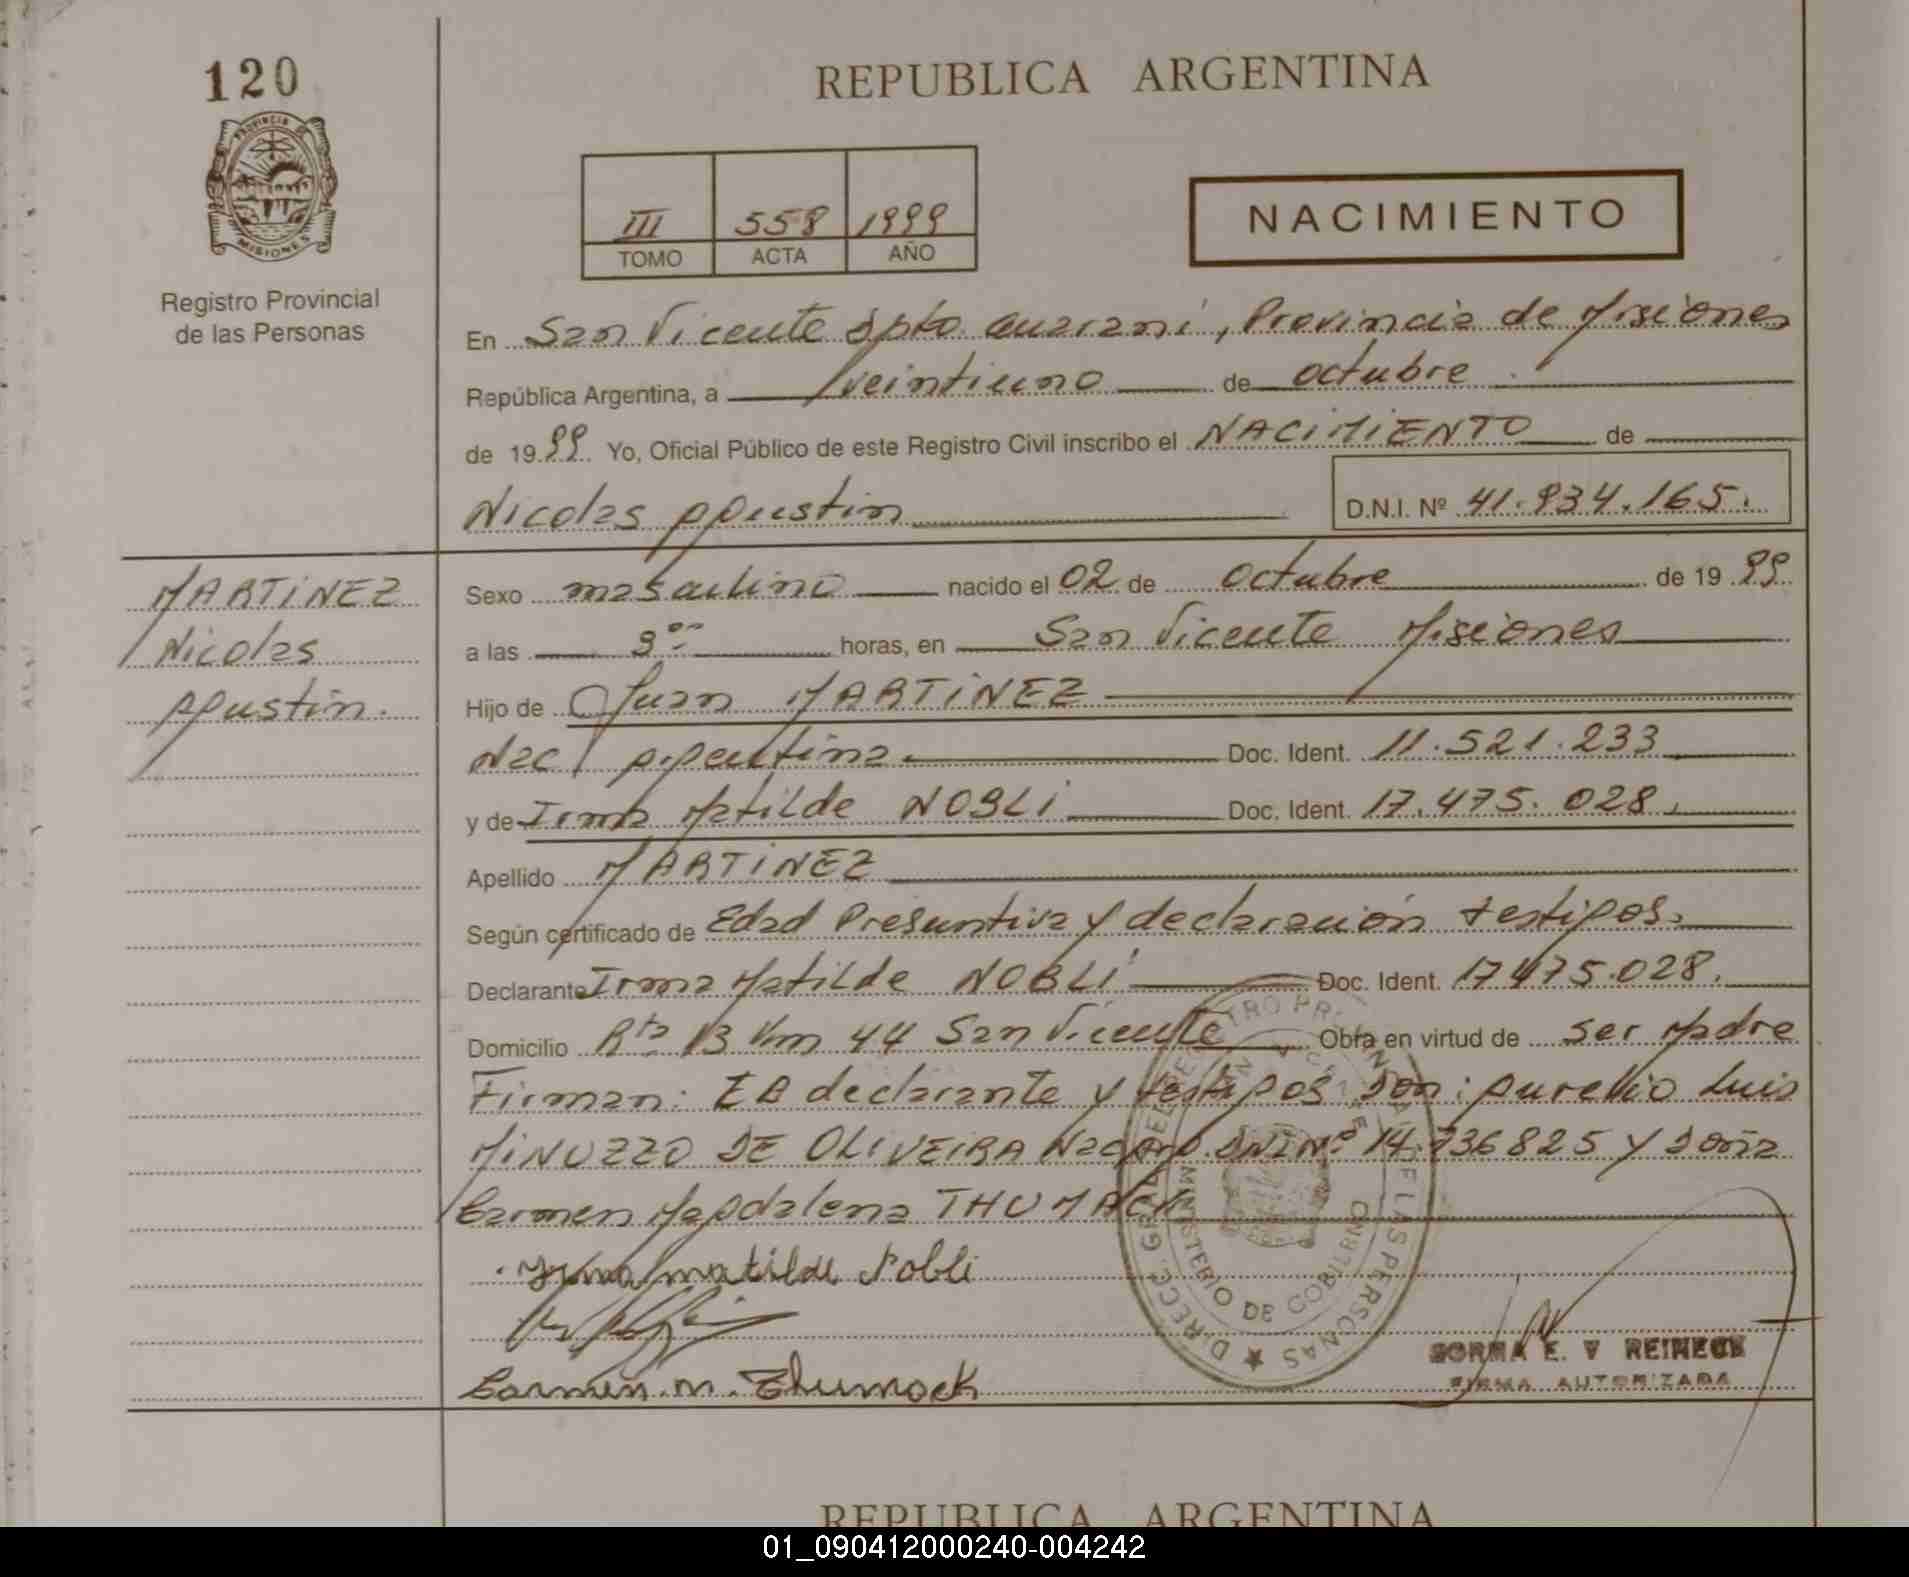 120
PROVINCIA DE
MISIONES
Registro Provincial
de las Personas
REPUBLICA ARGENTINA
III 558 1999
TOMO ACTA AÑO
NACIMIENTO
En San Vicente Dpto Guarani, Provincia de Misiones
República Argentina, a veintiuno de octubre
de 1999 Yo, Oficial Público de este Registro Civil inscribo el NACIMIENTO de
Nicolas Agustin D.N.I. Nº 41.934.165.
MARTINEZ
Nicolas
Agustin.
Sexo masculino nacido el 02 de Octubre de 1999
a las horas, en San Vicente Misiones
Hijo de Juan MARTINEZ
Nac Argentina. Doc. Ident. 11.521.233
y de Irma Matilde NOBLI Doc. Ident. 17.475.028.
Apellido MARTINEZ
Según certificado de Edad Presuntiva y declaración testigos.
Declarante Irma Matilde NOBLI Doc. Ident. 17475.028.
Domicilio Rta 13 Km 44 San Vicente Obra en virtud de ser Madre
Firman: LA declarante y testigos Don: Aurelio Luis
MINUZZO DE OLIVEIRA Nac DNI Nº 14.736825 Y Doña
Carmen Magdalena THUMACK
Irma matilde Nobli
Carmen. M. Thumack
DIRECC. GRAL. DEL REGISTRO PROVINCIAL DE LAS PERSONAS
MINISTERIO DE GOBIERNO
E. V REINECK
FIRMA AUTORIZADA
REPUBLICA ARGENTINA
01_090412000240-004242